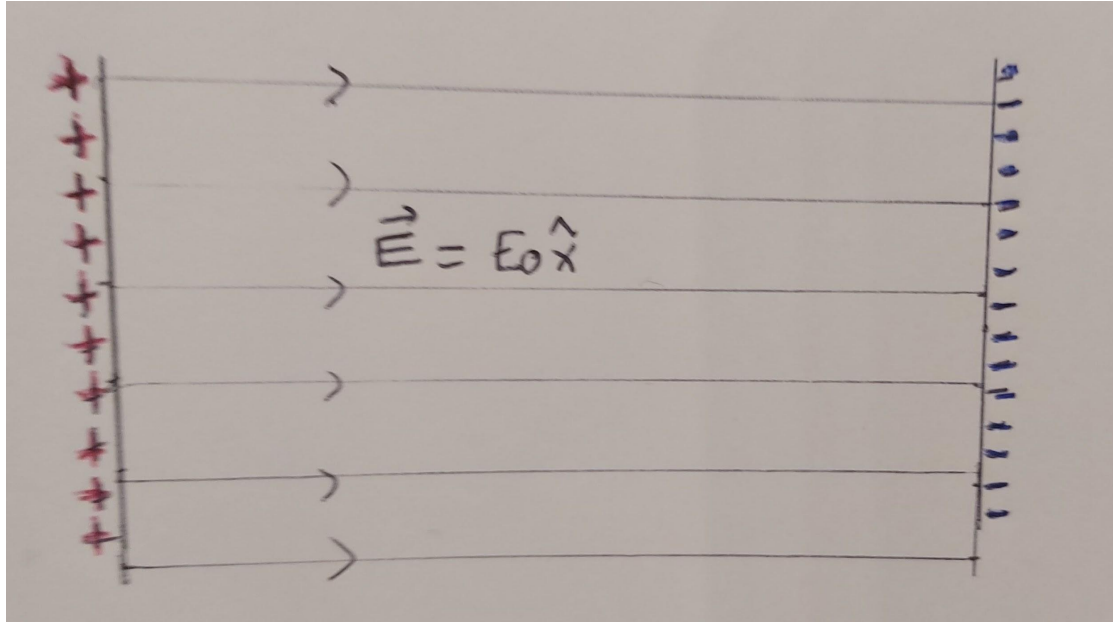 $\vec{E} = E_0 \hat{x}$